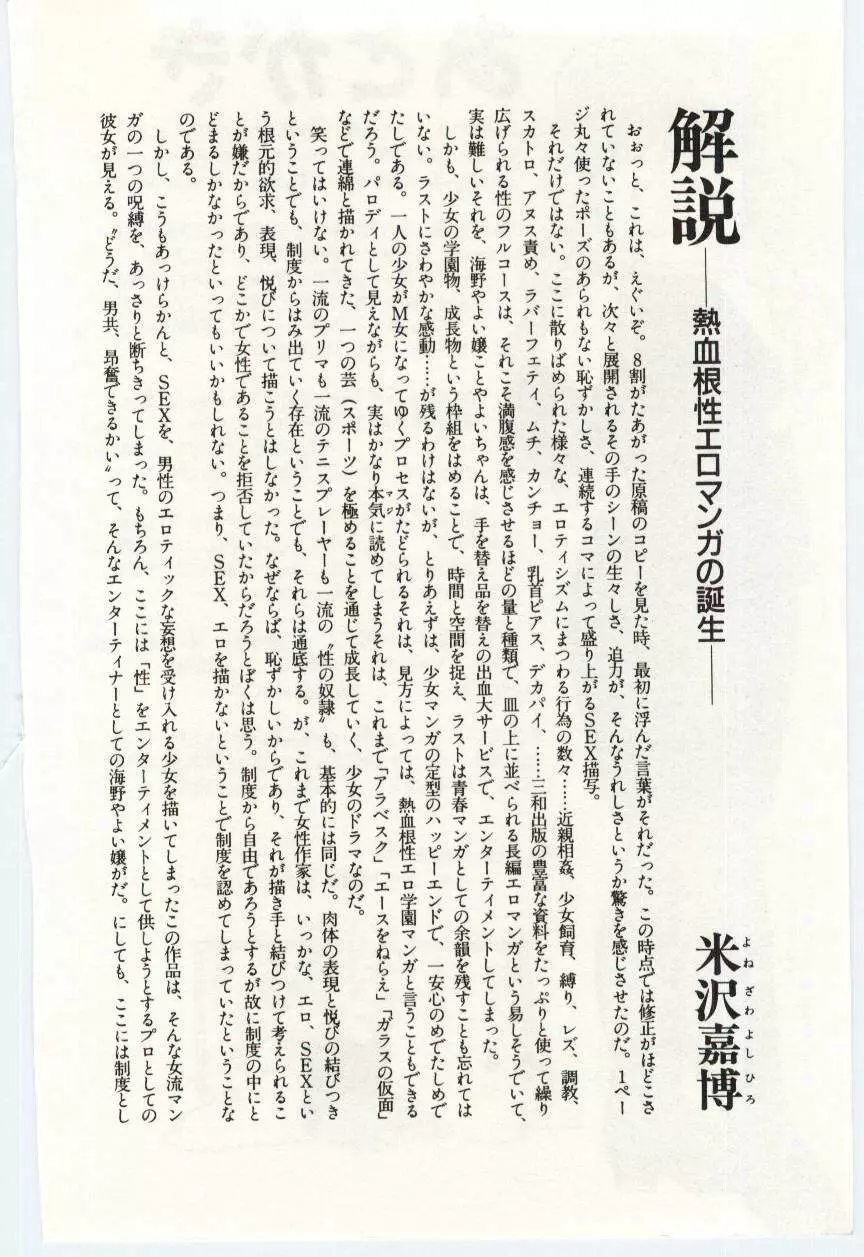 解説
――熱血根性エロマンガの誕生――
米沢嘉博
よねざわよしひろ
おぉっと、これは、えぐいぞ。8割がたあがった原稿のコピーを見た時、最初に浮んだ言葉がそれだった。この時点では修正がほどこさ
れていないこともあるが、次々と展開されるその手のシーンの生々しさ、迫力が、そんなうれしさというか驚きを感じさせたのだ。1ペー
ジ丸々使ったポーズのあられもない恥ずかしさ、連続するコマによって盛り上がるSEX描写。
それだけではない。ここに散りばめられた様々な、エロティシズムにまつわる行為の数々……近親相姦、少女飼育、縛り、レズ、調教、
スカトロ、アヌス責め、ラバーフェティ、ムチ、カンチョー、乳首ピアス、デカパイ、……三和出版の豊富な資料をたっぷりと使って繰り
広げられる性のフルコースは、それこそ満腹感を感じさせるほどの量と種類で、皿の上に並べられる長編エロマンガという易しそうでいて、
実は難しいそれを、海野やよい嬢ことやよいちゃんは、手を替え品を替えの出血大サービスで、エンターティメントしてしまった。
しかも、少女の学園物、成長物という枠組をはめることで、時間と空間を捉え、ラストは青春マンガとしての余韻を残すことも忘れては
いない。ラストにさわやかな感動……が残るわけはないが、とりあえずは、少女マンガの定型のハッピーエンドで、一安心のめでたしめで
たしである。一人の少女がM女になってゆくプロセスがたどられるそれは、見方によっては、熱血根性エロ学園マンガと言うこともできる
だろう。パロディとして見えながらも、実はかなり本気に読めてしまうそれは、これまで「アラベスク」「エースをねらえ」「ガラスの仮面」
マジ
などで連綿と描かれてきた、一つの芸（スポーツ）を極めることを通じて成長していく、少女のドラマなのだ。
笑ってはいけない。一流のプリマも一流のテニスプレーヤーも一流の〝性の奴隷〟も、基本的には同じだ。肉体の表現と悦びの結びつき
ということでも、制度からはみ出ていく存在ということでも、それらは通底する。が、これまで女性作家は、いっかな、エロ、SEXとい
う根元的欲求、表現、悦びについて描こうとはしなかった。なぜならば、恥ずかしいからであり、それが描き手と結びつけて考えられるこ
とが嫌だからであり、どこかで女性であることを拒否していたからだろうとぼくは思う。制度から自由であろうとするが故に制度の中にと
どまるしかなかったといってもいいかもしれない。つまり、SEX、エロを描かないということで制度を認めてしまっていたということな
のである。
しかし、こうもあっけらかんと、SEXを、男性のエロティックな妄想を受け入れる少女を描いてしまったこの作品は、そんな女流マン
ガの一つの呪縛を、あっさりと断ちきってしまった。もちろん、ここには「性」をエンターティメントとして供しようとするプロとしての
彼女が見える。〝どうだ、男共、昂奮できるかい〟って、そんなエンターティナーとしての海野やよい嬢がだ。にしても、ここには制度とし